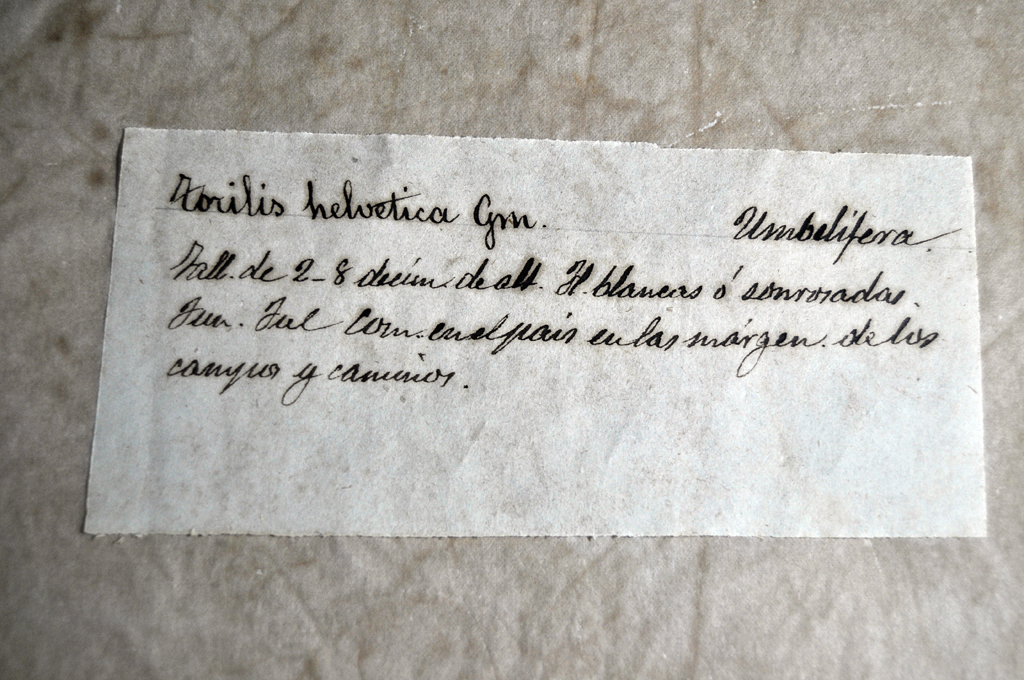 Torilis helvetica Gm. Umbelífera.
Tall. de 2-8 decím. de alt. Fl. blancas ó sonrosadas.
Jun. Jul Com. en el país en las márgen. de los
campos y caminos.